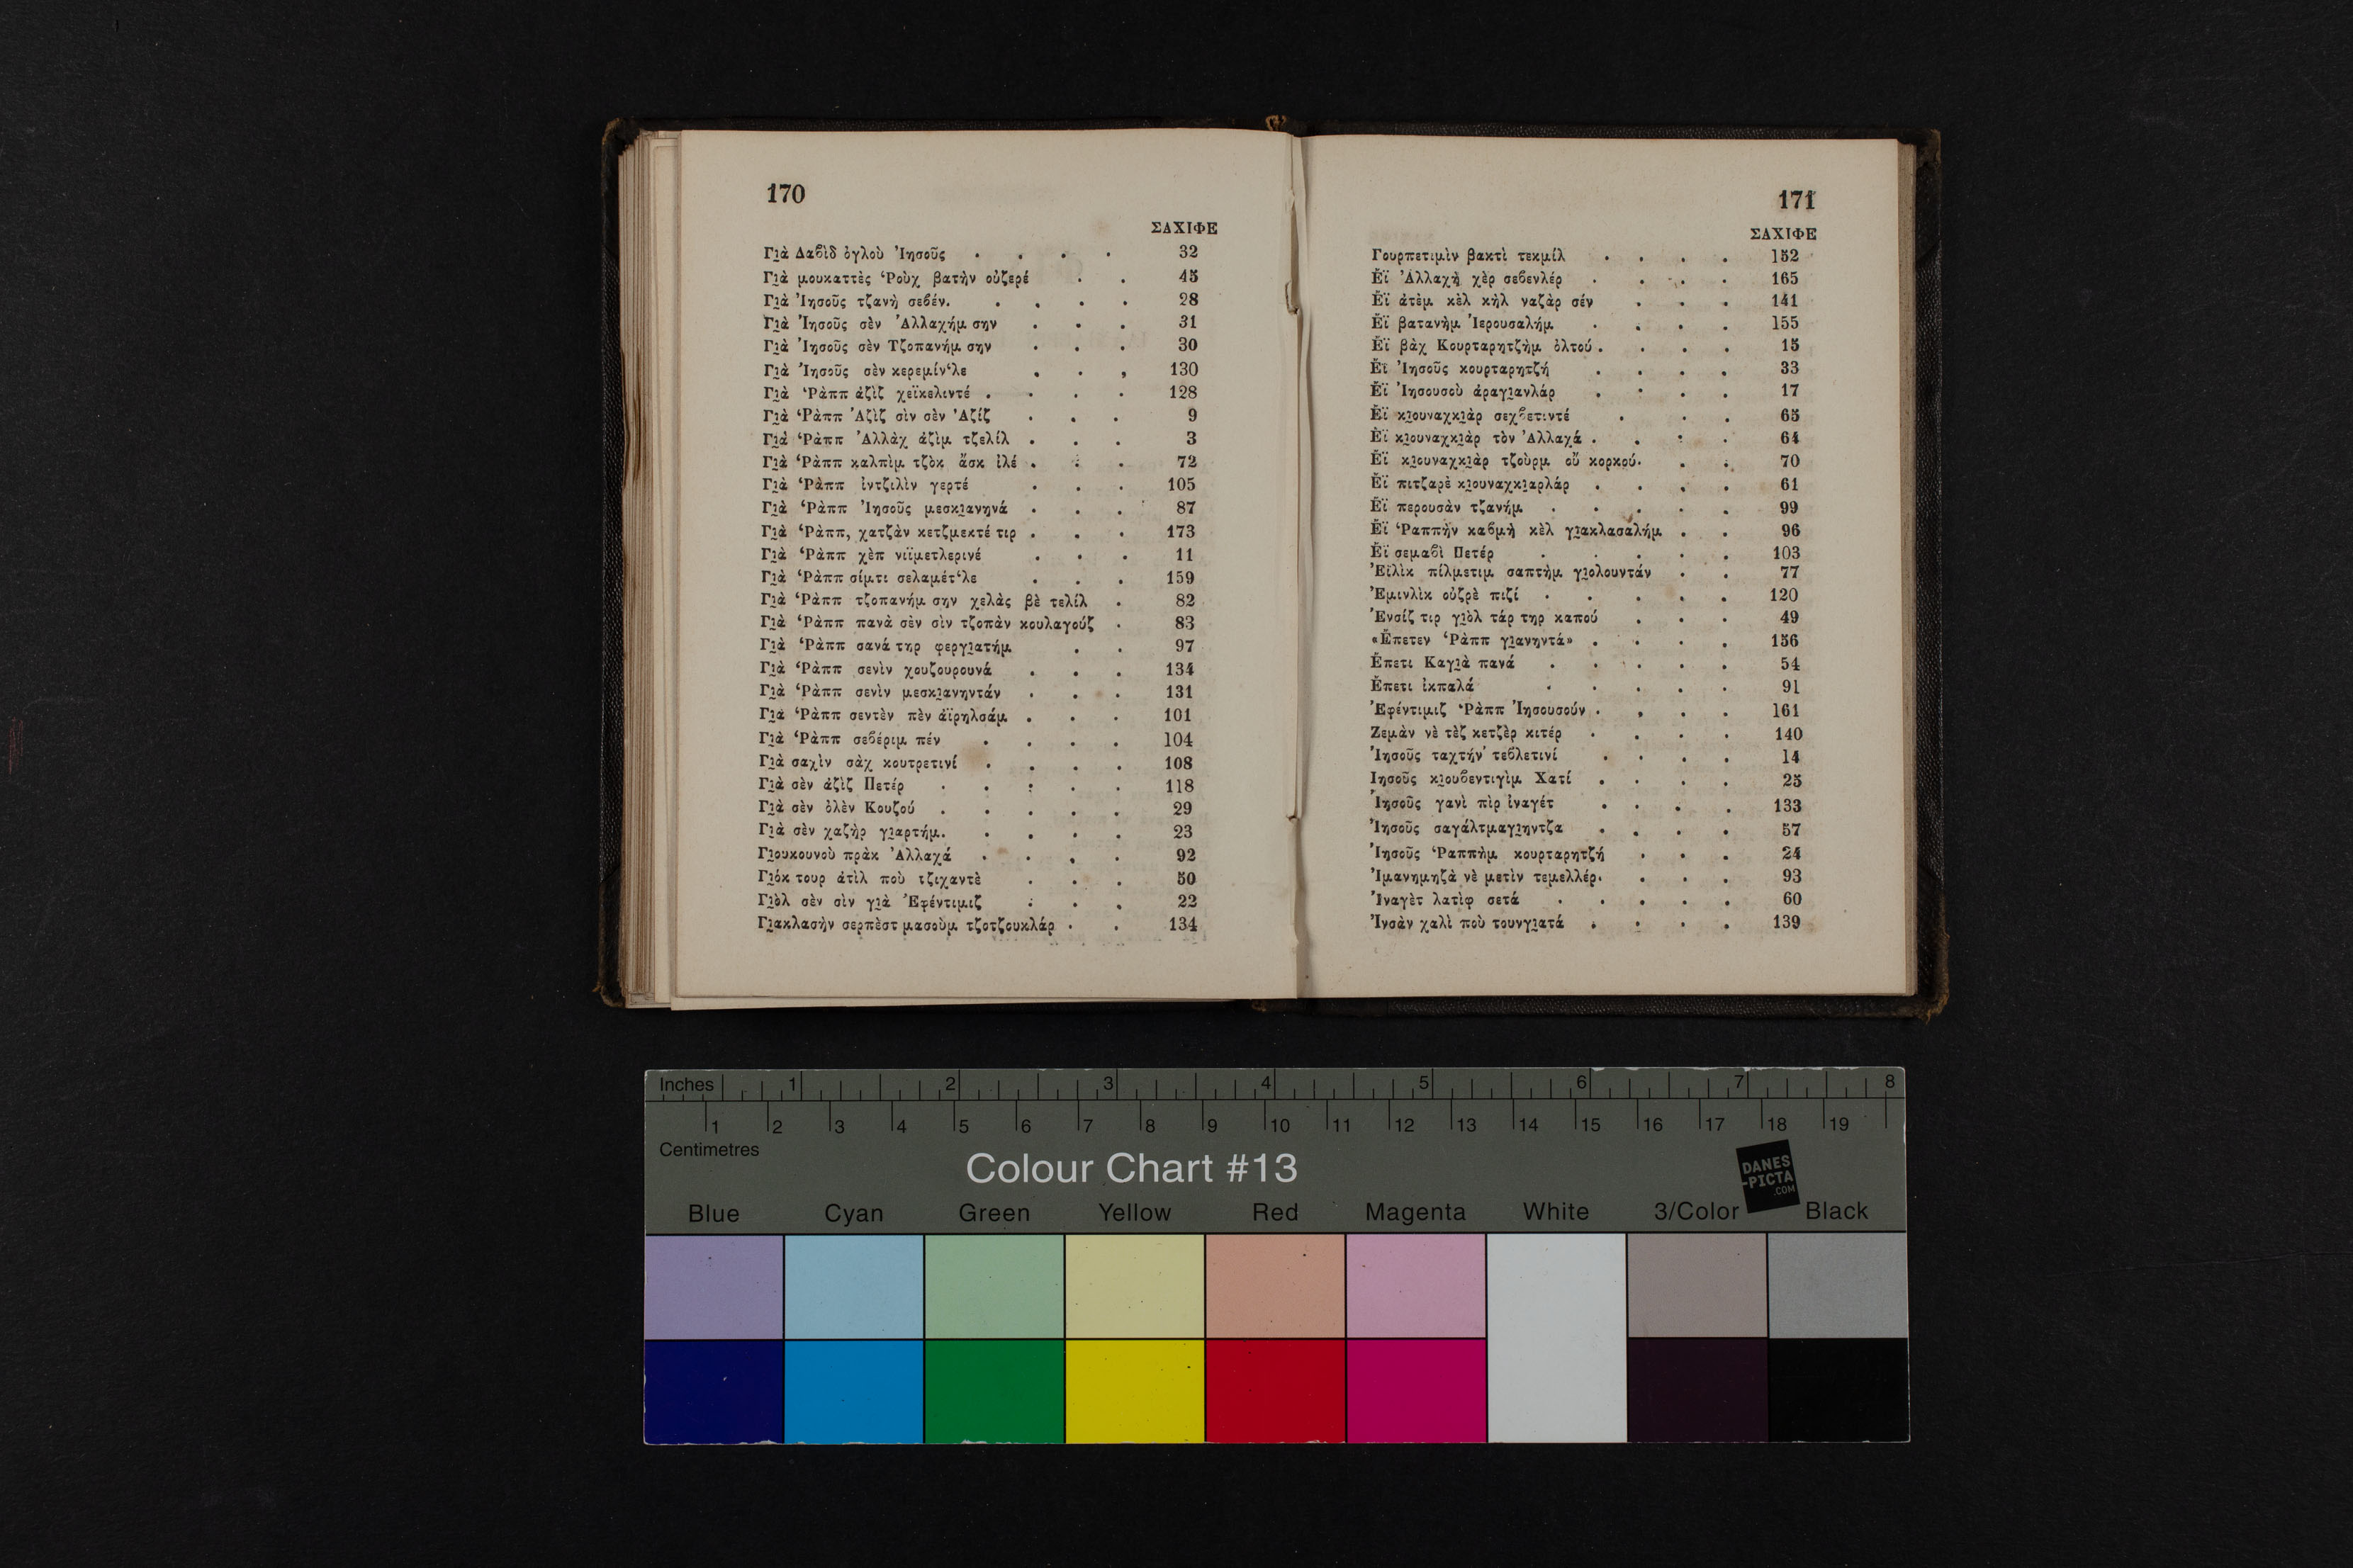 170
ΣΑΧΙΦΕ
Γι̲ὰ Δαβὶδ ὀγλοὺ Ἰησοῦς . . . . 32
Γι̲ὰ μουκαττὲς Ῥοὺχ βατὴν οὐζερέ . . 45
Γι̲ὰ Ἰησοῦς τζανὴ σεβέν. . . . . 28
Γι̲ὰ Ἰησοῦς σὲν Ἀλλαχήμ σην . . . 31
Γι̲ὰ Ἰησοῦς σὲν Τζοπανήμ σην . . . 30
Γι̲ὰ Ἰησοῦς σὲν κερεμίν‘λε . . , 130
Γι̲ὰ Ῥὰππ ἀζὶζ χεϊκελιντέ . . . . 128
Γι̲ὰ Ῥὰππ Ἀζὶζ σὶν σὲν Ἀζίζ . . . 9
Γι̲ὰ Ῥὰππ Ἀλλὰχ ἀζὶμ τζελίλ . . . 3
Γι̲ὰ Ῥὰππ καλπὶμ τζὸκ ἄσκ ἰλέ . . . 72
Γι̲ὰ Ῥὰππ ἰντζιλὶν γερτέ . . . 105
Γι̲ὰ Ῥὰππ Ἰησοῦς μεσκι̲ανηνά . . . 87
Γι̲ὰ Ῥὰππ, χατζὰν κετζμεκτέ τιρ . . . 173
Γι̲ὰ Ῥὰππ χὲπ νιϊμετλερινέ . . . 11
Γι̲ὰ Ῥὰππ σίμτι σελαμέτ‘λε . . . 159
Γι̲ὰ Ῥὰππ τζοπανήμ σην χελὰς βὲ τελίλ . 82
Γι̲ὰ Ῥὰππ πανὰ σὲν σὶν τζοπὰν κουλαγούζ . 83
Γι̲ὰ Ῥὰππ σανά τηρ φεργι̲ατήμ . . 97
Γι̲ὰ Ῥὰππ σενὶν χουζουρουνά . . . 134
Γι̲ὰ Ῥὰππ σενὶν μεσκι̲ανηντάν . . . 131
Γι̲ὰ Ῥὰππ σεντὲν πὲν ἀϊρηλσάμ . . . 101
Γι̲ὰ Ῥὰππ σεβέριμ πέν . . . . 104
Γι̲ὰ σαχὶν σὰχ κουτρετινί . . . . 108
Γι̲ὰ σὲν ἀζὶζ Πετέρ . . . . . 118
Γι̲ὰ σὲν ὀλὲν Κουζού . . . . . 29
Γι̲ὰ σὲν χαζὴρ γι̲αρτήμ. . . . . 23
Γι̲ουκουνοὺ πρὰκ Ἀλλαχά . . . . 92
Γι̲όκ τουρ ἀτὶλ ποὺ τζιχαντὲ . . . 50
Γι̲ὸλ σὲν σὶν γι̲ὰ Ἐφέντιμιζ . . . 22
Γι̲ακλασὴν σερπὲστ μασοὺμ τζοτζουκλάρ . . 134
171
ΣΑΧΙΦΕ
Γουρπετιμὶν βακτὶ τεκμίλ . . . . 152
Ἔϊ Ἀλλαχὴ χὲρ σεβενλέρ . . . . 165
Ἔϊ ἀτὲμ κὲλ κὴλ ναζὰρ σέν . . . 141
Ἔϊ βατανὴμ Ἰερουσαλήμ . . . . 155
Ἔϊ βὰχ Κουρταρητζὴμ ὀλτού . . . . 15
Ἔϊ Ἰησοῦς κουρταρητζή . . . . 33
Ἔϊ Ἰησουσοὺ ἀραγι̲ανλάρ . . . . 17
Ἔϊ κι̲ουναχκι̲ὰρ σεχβετιντέ . . . 65
Ἔϊ κι̲ουναχκι̲ὰρ τὸν Ἀλλαχά . . . . 64
Ἔϊ κι̲ουναχκι̲ὰρ τζοὺρμ οὔ κορκού. . . 70
Ἔϊ πιτζαρὲ κι̲ουναχκι̲αρλάρ . . . . 61
Ἔϊ περουσὰν τζανήμ . . . . . 99
Ἔϊ Ῥαππὴν καβμὴ κὲλ γι̲ακλασαλήμ . . 96
Ἔϊ σεμαβὶ Πετέρ . . . . . 103
Ἐϊλὶκ πίλμετιμ σαπτὴμ γι̲ολουντάν . . 77
Ἐμινλὶκ οὐζρὲ πιζί . . . . . 120
Ἐνσίζ τιρ γι̲ὸλ τάρ τηρ καπού . . . 49
«Ἔπετεν Ῥὰππ γι̲ανηντά» . . . . 156
Ἔπετι Καγι̲ὰ πανά . . . . . 54
Ἔπετι ἰκπαλά . . . . . 91
Ἐφέντιμιζ Ῥὰππ Ἰησουσούν . . . . 161
Ζεμὰν νὲ τὲζ κετζὲρ κιτέρ . . . . 140
Ἰησοῦς ταχτήν τεβλετινί . . . . 14
Ιησοῦς κι̲ουβεντιγὶμ Χατί . . . . 25
Ἰησοῦς γανὶ πὶρ ἰναγέτ . . . . 133
Ἰησοῦς σαγάλτμαγι̲ηντζα . . . . 57
Ἰησοῦς Ῥαππὴμ κουρταρητζή . . . 24
Ἰμανημηζὰ νὲ μετὶν τεμελλέρ. . . . 93
Ἰναγὲτ λατὶφ σετά . . . . . 60
Ἰνσὰν χαλὶ ποὺ τουνγι̲ατά . . . . 139
Inches 1 2 3 4 5 6 7 8
1 2 3 4 5 6 7 8 9 10 11 12 13 14 15 16 17 18 19
Centimetres
Colour Chart #13
DANES
-PICTA
.COM
Blue Cyan Green Yellow Red Magenta White 3/Color Black